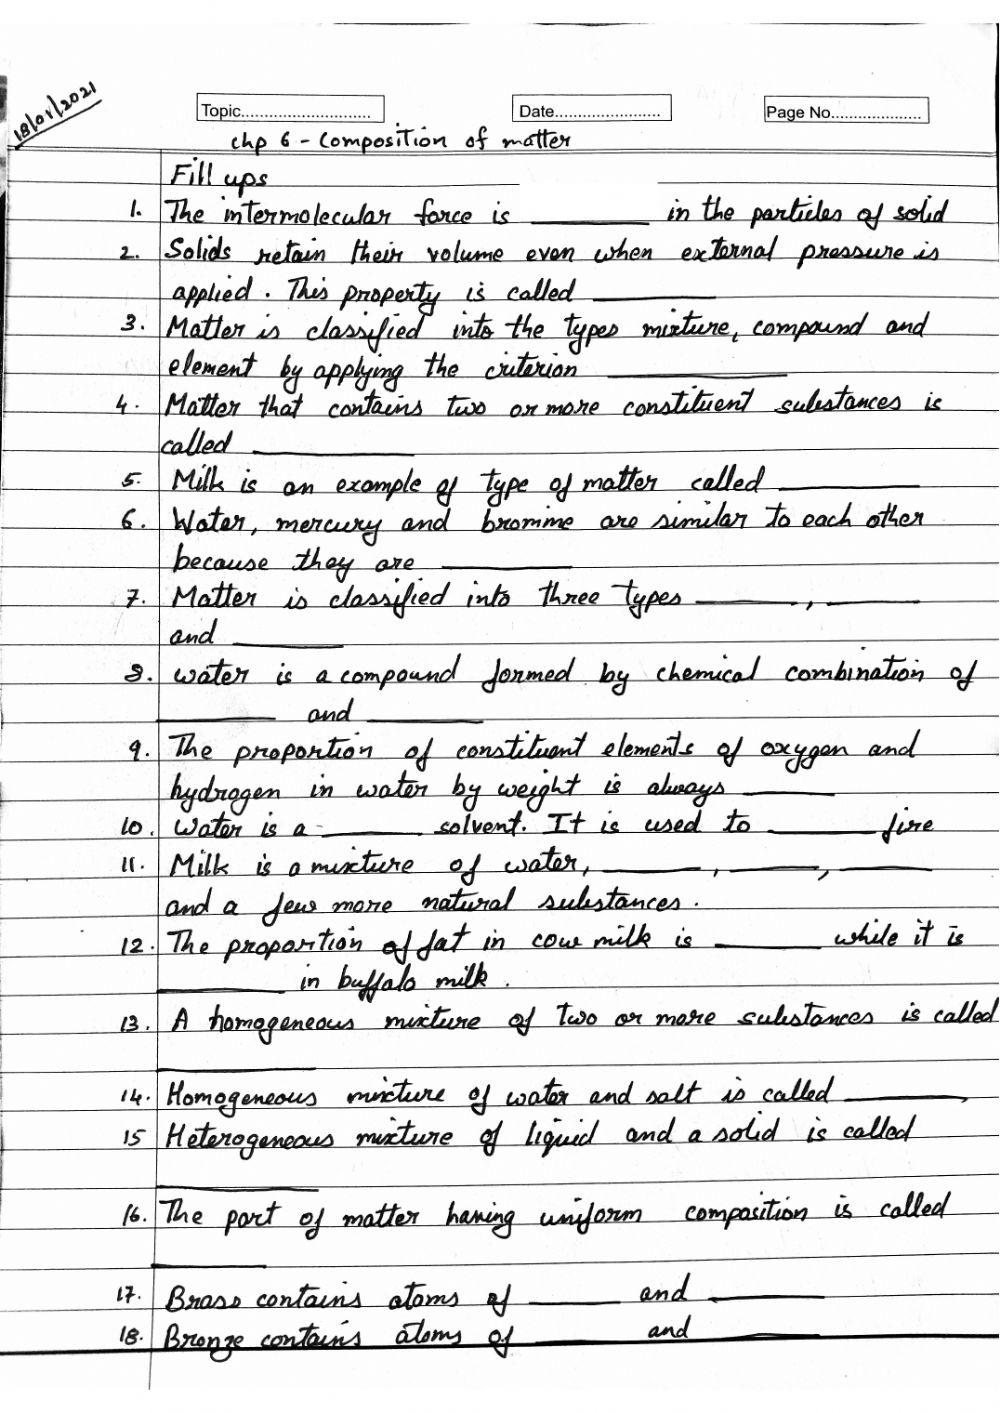 18/01/2021
Topic............................ Date....................... Page No....................
chp 6 - Composition of matter
Fill ups
1. The intermolecular force is ________ in the particles of solid
2. Solids retain their volume even when external pressure is
applied. This property is called ________
3. Matter is classified into the types mixture, compound and
element by applying the criterion ________
4. Matter that contains two or more constituent substances is
called ________
5. Milk is an example of type of matter called ________
6. Water, mercury and bromine are similar to each other
because they are ________
7. Matter is classified into three types ________, ________
and ________
8. Water is a compound formed by chemical combination of
________ and ________
9. The proportion of constituent elements of oxygen and
hydrogen in water by weight is always ________
10. Water is a ________ solvent. It is used to ________ fire
11. Milk is a mixture of water, ________, ________, ________
and a few more natural substances.
12. The proportion of fat in cow milk is ________ while it is
________ in buffalo milk.
13. A homogeneous mixture of two or more substances is called
________
14. Homogeneous mixture of water and salt is called ________,
15 Heterogeneous mixture of liquid and a solid is called
________
16. The part of matter having uniform composition is called
________
17. Brass contains atoms of ________ and ________
18. Bronze contains atoms of ________ and ________